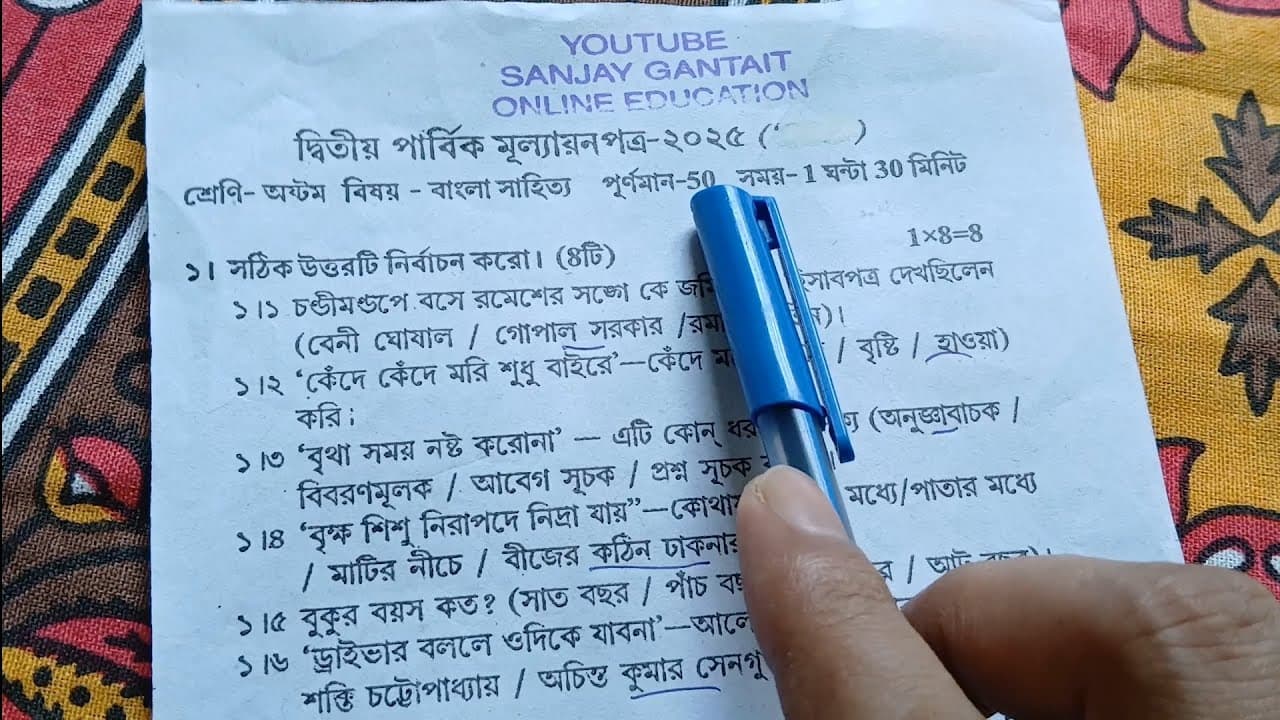 YOUTUBE
SANJAY GANTAIT
ONLINE EDUCATION
দ্বিতীয় পার্বিক মূল্যায়নপত্র-২০২৫ (‘ )
শ্রেণি- অষ্টম বিষয় - বাংলা সাহিত্য পূর্ণমান-50 সময়- 1 ঘন্টা 30 মিনিট
১। সঠিক উত্তরটি নির্বাচন করো। (8টি) 1×8=8
১।১ চণ্ডীমণ্ডপে বসে রমেশের সঙ্গে কে দেখছিলেন
(বেনী ঘোষাল / গোপাল সরকার /
১।২ ‘কেঁদে কেঁদে মরি শুধু বাইরে’—কেঁদে / বৃষ্টি / হাওয়া)
করি ;
১।৩ ‘বৃথা সময় নষ্ট করোনা’ — এটি কোন্ (অনুজ্ঞাবাচক /
বিবরণমূলক / আবেগ সূচক / প্রশ্ন সূচক
১।৪ ‘বৃক্ষ শিশু নিরাপদে নিদ্রা যায়”— মধ্যে/পাতার মধ্যে
/ মাটির নীচে / বীজের কঠিন
১।৫ বুকুর বয়স কত? (সাত বছর / পাঁচ / আট
১।৬ ‘ড্রাইভার বললে ওদিকে যাবনা’—
শক্তি চট্টোপাধ্যায় / অচিন্ত কুমার